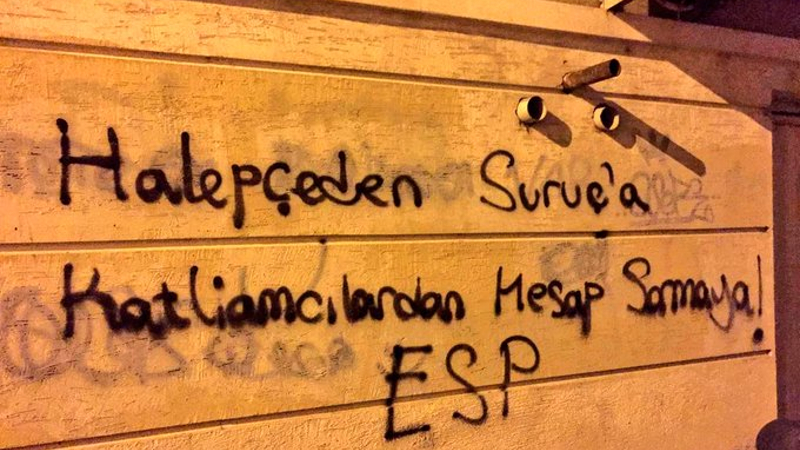 Halepçeden Suruç'a
Katliamcılardan Hesap Sormaya!
ESP